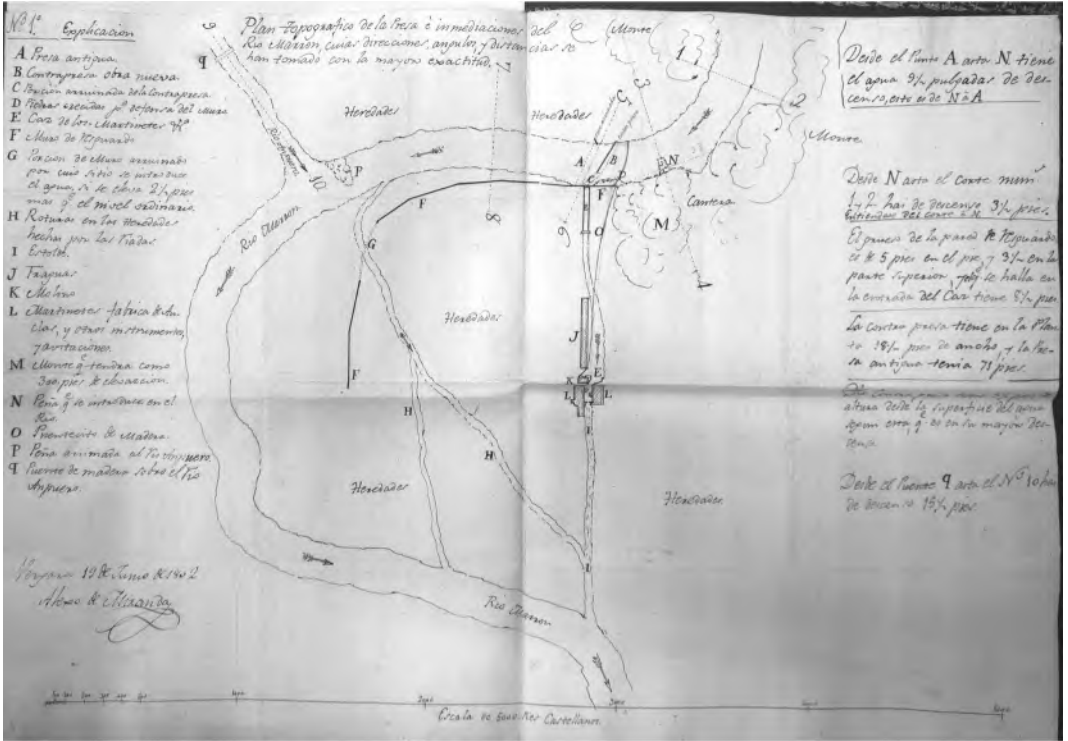 Nº 1º. Explicacion
A Presa antigua.
B Contrapresa obra nueva.
C Porcion arruinada de la Contrapresa
D Piedras crecidas pª defensa del Muro
E Car de los Martinetes
F Muro de Resguardo
G Porcion de Muro arruinado
por cuio sitio se introduce
el agua, si se eleva 2½ pies
mas q. el nivel ordinario
H Roturas en las Heredades
hechas por las Riadas
I Estolda.
J Fraguas
K Molino
L Martinetes fabrica de
y otros instrumentos,
M Monte q. tendra como
300 pies de elevacion.
N Peña q. se introduce en el
Rio.
O Puentecito de Madera
P Peña arrimada al Rio Ampuero
q Puente de madera sobre el Rio
Ampuero.
Vergara 19 de Junio de 1802
Miranda
Plan Topografico de la Presa è inmediaciones del
Rio Marron, cuias direciones, angulos, y distancias se
han tomado con la mayor exactitud.
q
9
10
P
Heredades
Heredades
Monte
Monte
1
2
3
4
5
6
7
8
A
B
C
D
N
F
F
F
O
M
Cantera
G
Rio Marron
Heredades
J
E
K
L
L
I
H
H
Heredades
Heredades
I
Rio Marron
Desde el Punto A asta N tiene
el agua 9½ pulgadas de des-
censo, esto es de N à A
Desde N asta el corte
hai de descenso 3½ pies.
El grueso de la pared de Resguardo
es de 5 pies en el pie, y 3½ en la
parte superior, se halla en
la entrada del Car tiene pies
La contra presa tiene en la Plan-
ta 38½ pies de ancho, y la Pre-
sa antigua tenia 71 pies.
altura desde la superficie del agua
segun esta, q. es en su mayor des-
censo.
Desde el Puente q asta el Nº 10 hai
de descenso 15½ pies.
Escala de 6000 Pies Castellanos.